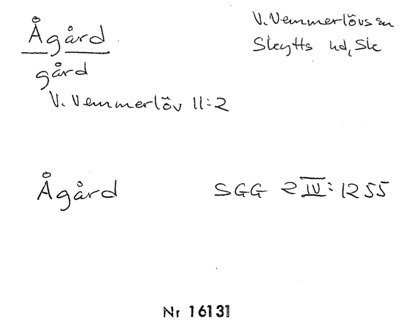 Ågård
V. Vemmerlövs sn
Skytts hd, Sk
gård
V. Vemmerlöv 11:2
Ågård SGG 2 IV: 1255
Nr 16131